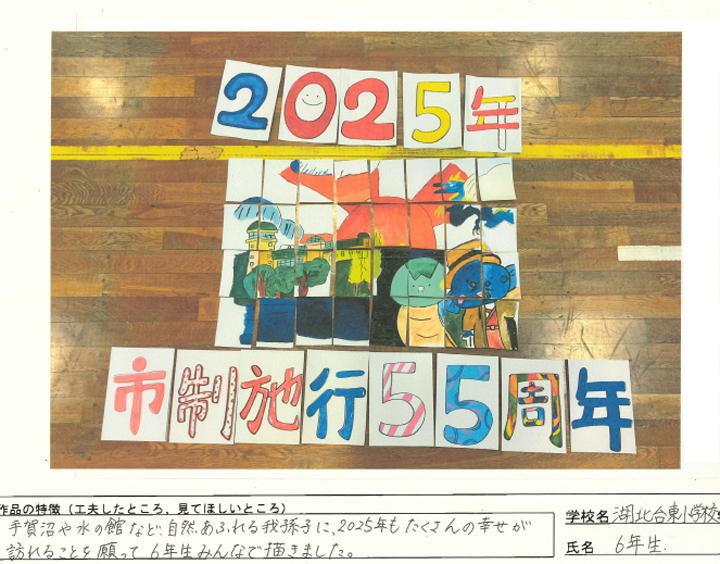 2025年
市制施行55周年
作品の特徴（工夫したところ、見てほしいところ）
手賀沼や水の館など、自然あふれる我孫子に、2025年もたくさんの幸せが
訪れることを願って 6年生みんなで描きました。
学校名 湖北台東小学校
氏名 6年生.